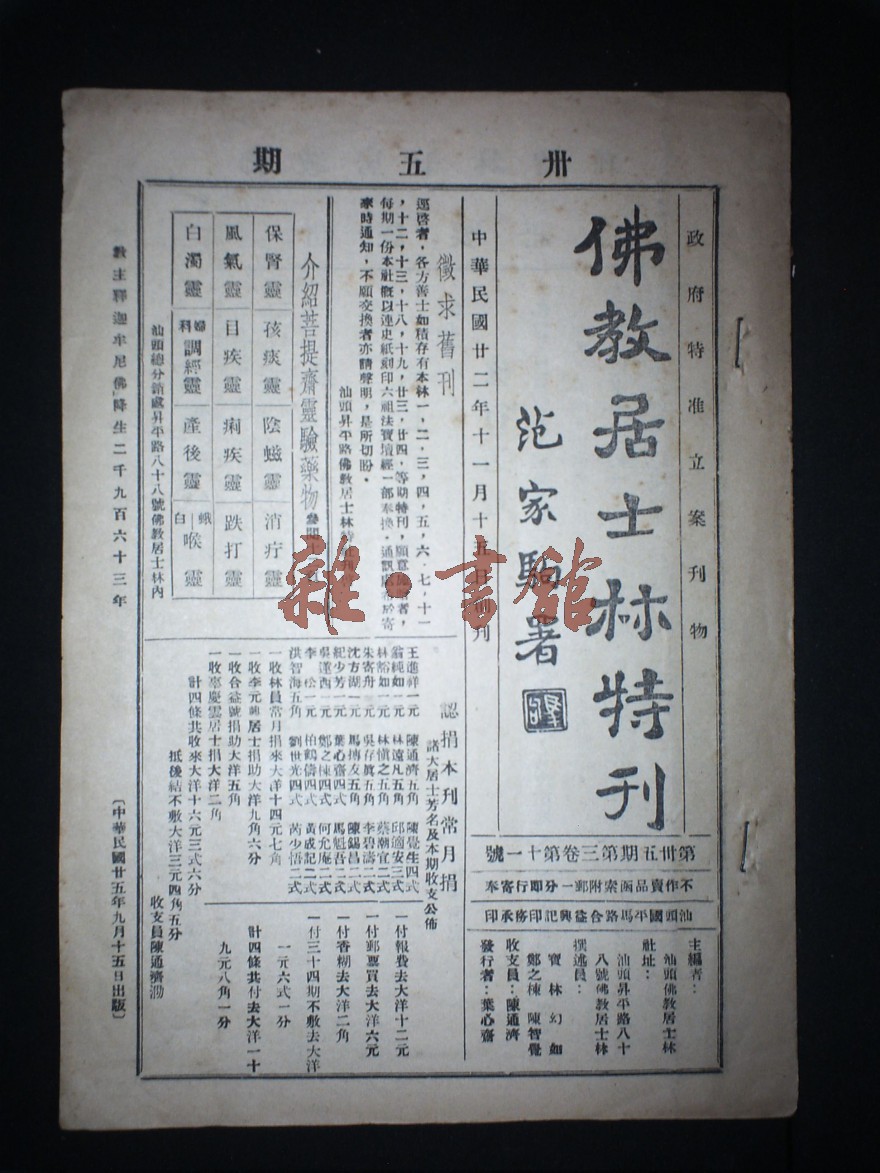 卅五期
政府特准立案刊物
佛教居士林特刊
范家駒署
中華民國廿二年十一月十五日創刊
第卅五期第三卷第十一號
不作賣品函索附郵一分即行寄奉
汕頭國平馬路合益興記印務承印
主編者：
汕頭佛教居士林
社址：
汕頭昇平路八十
八號佛教居士林
撰述員：
寶林 幻如
鄭之棟 陳智覺
收支員：陳通濟
發行者：葉心齋
徵求舊刊
逕啓者，各方善士如積存有本林一，二，三，四，五，六，七，十一
，十二，十三，十八，十九，廿三，廿四，等期特刊，願意
每期一份本社概以連史紙刻印六祖法寶壇經一部奉換，通訊
來時通知，不願交換者亦請聲明，是所切盼。
汕頭昇平路佛教居士林特刊
介紹菩提齋靈驗藥物
保腎靈 孩痰靈 陰蝨靈 消疔靈
風氣靈 目疾靈 痢疾靈 跌打靈
白濁靈 婦科調經靈 產後靈 白蛾喉靈
汕頭總分銷處昇平路八十八號佛教居士林內
認捐本刊常月捐
諸大居士芳名及本期收支公佈
王進祥一元 陳通濟五角 陳覺生四式
翁純如一元 林遠凡五角 邱適安三式
林谿如一元 林愼之五角 蔡潮宜二式
朱寄舟一元 吳存眞五角 李碧濤二式
沈方湖一元 馬摶友五角 陳錫昌二式
紀少芳一元 葉心齋四式 馬魁吾二式
吳蓮西一元 鄭之棟四式 何允庵二式
李松一元 柏鶴儔四式 黃成記二式
洪智海五角 劉世光四式 芮少悟二式
一收林員常月捐來大洋十四元七角
一收李元 居士捐助大洋九角六分
一收合益號捐助大洋五角
一收辜慶雲居士捐大洋二角
計四條共收來大洋十六元三式六分
抵後結不敷大洋三元四角五分
收支員陳通濟泐
一付報費去大洋十二元
一付郵票買去大洋六元
一付香糊去大洋二角
一付三十四期不敷去大洋
一元六式一分
計四條共付去大洋一十
九元八角一分
教主釋迦牟尼佛降生二千九百六十三年
〔中華民國廿五年九月十五日出版〕
雜·書館